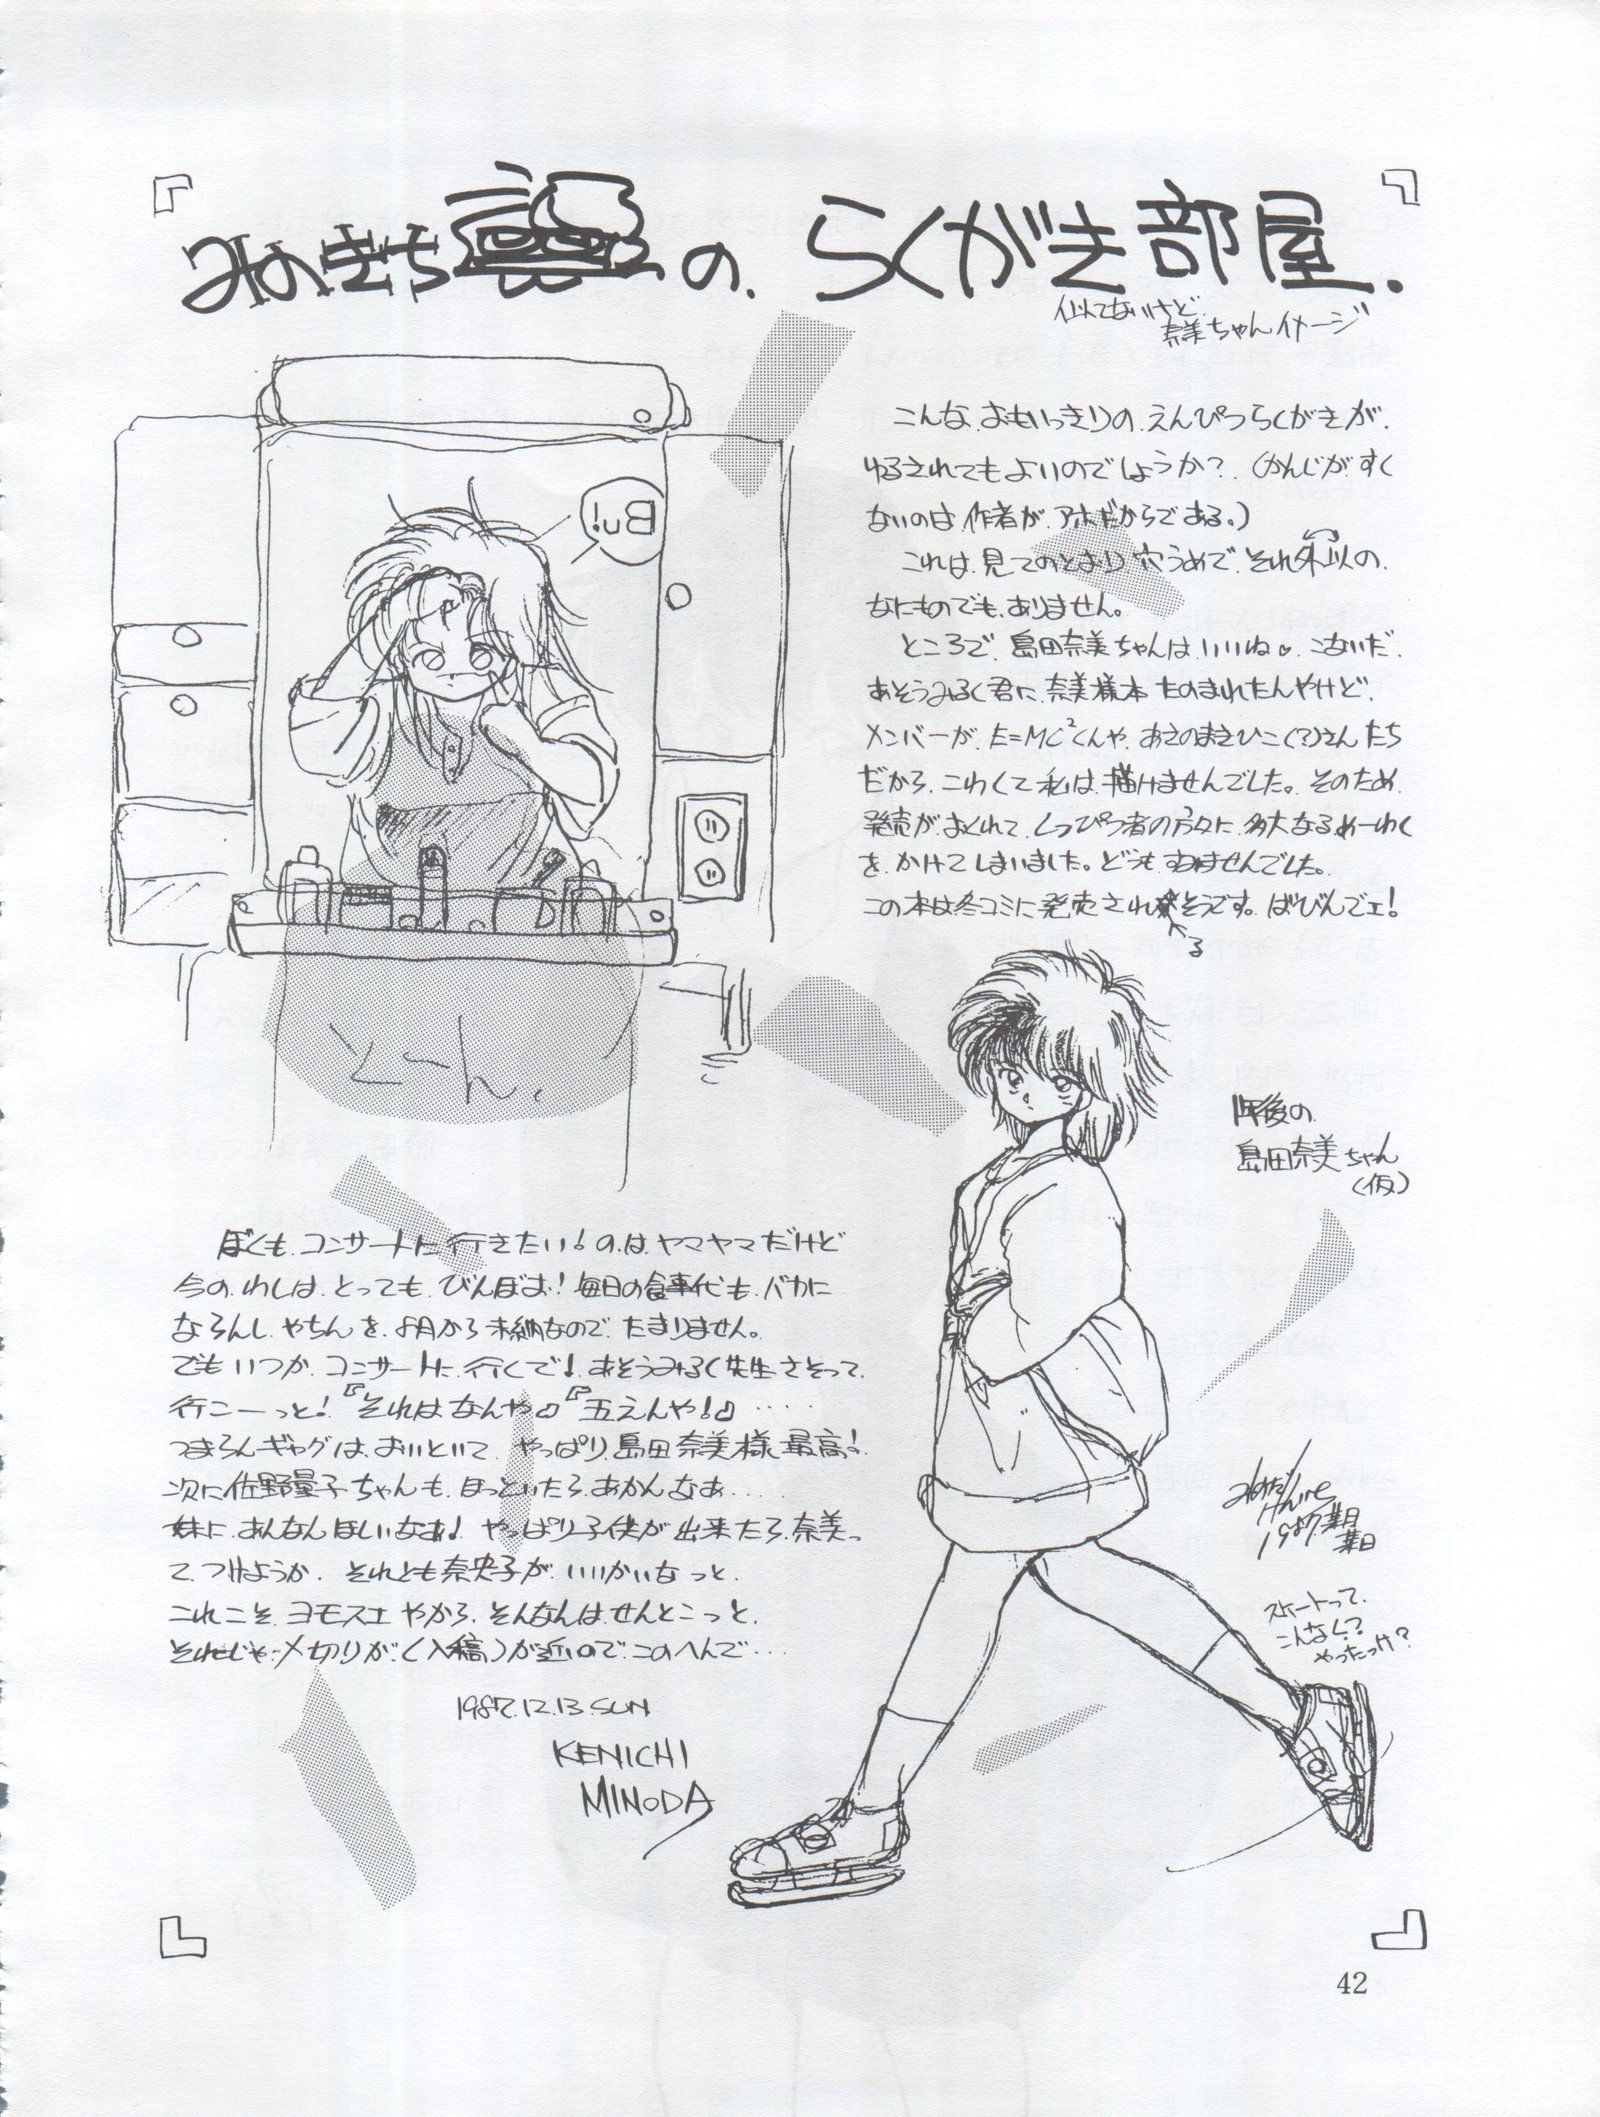 みのきち の.らくがき部屋.
似てないけど.
奈美ちゃんイメージ
Bu!
こんな.おもいっきりの.えんぴつらくがきが.
ゆるされてもよいのでしょうか?.(かんじが.すく
ないのは作者が.アホだからである。)
これは.見てのとおり穴うめで.それ外以の.
なにものでも.ありません。
ところで.島田奈美ちゃんは.いいね♡.こないだ.
あそうみるく君に.奈美様本たのまれたんやけど.
メンバーが.E=MC²くんや.あさのまさひこ(?)さんたち
だから.こわくて私は.描けませんでした。そのため.
発売が.おくれて.しっぴつ者の方々に.多大なるめーわく
を.かけてしまいました。どうもすいませんでした。
この本は冬コミに発売されるそうです。ばびんでェ!
とーん.
1年後の.
島田奈美ちゃん
(仮)
ぼくも.コンサートに行きたい!のは.ヤマヤマだけど
今の.わしは.とっても.びんぼお!毎日の食事代も.バカに
ならんし.やちんを.8月から未納なので.たまりません。
でもいつか.コンサートに.行くで!.あそうみるく先生さそって.
行こーっと!『それはなんや♪『五えんや!♪‥‥
つまらんギャグは.おいといて.やっぱり.島田奈美様.最高!.
次に佐野量子ちゃんも.ほっといたら.あかんなぁ‥‥
妹に.あんなんほしいなぁ!やっぱり子供が出来たら.奈美っ
て.つけようか.それとも奈央子が.いいかいなっと.
これこそ.ヨモスエやから.そんなんは.せんとこっと.
それじゃ〆切りが.(入稿)が近いので.このへんで‥‥
1987.12.13.SUN
KENICHI
MINODA
1987
スケートって.
こんなし?
やったっけ?
42